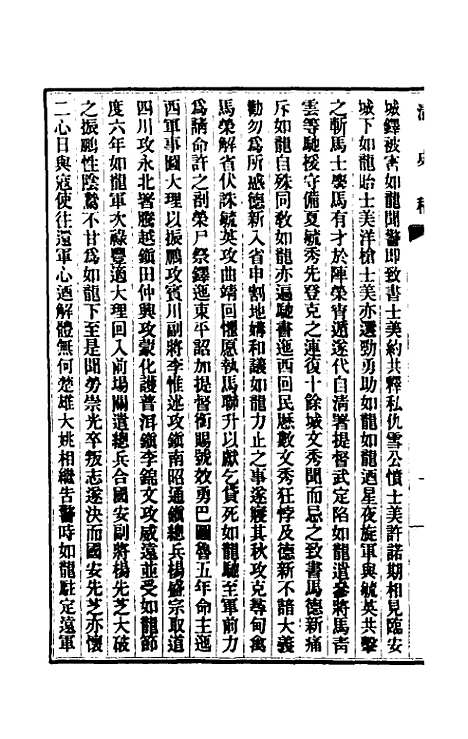 清史稿
城鐸被害如龍聞警即致書士美約共釋私仇雪公憤士美許諾期相見臨安
城下如龍貽士美洋槍士美亦選勁勇助如龍如龍酒星夜旋軍與毓英共擊
之斬馬士麐馬有才於陣榮宵遁遂代自清署提督武定陷如龍遣參將馬青
雲等馳援守備夏毓秀先登克之連復十餘城文秀聞而忌之致書馬德新痛
斥如龍自殊同教如龍亦遍馳書迤西回民歷數文秀狂悖及德新不諳大義
勸勿為所惑德新入省申割地媾和議如龍力止之事遂寢其秋攻克尋甸禽
馬榮解省伏誅毓英攻曲靖回懼愿執馬聯升以獻乞貸死如龍馳至軍前力
為請命許之剖榮尸祭鐸迤東平詔加提督銜賜號效勇巴圖魯五年命主迤
西軍事圖大理以振鵬攻賓川副將李惟述攻鎮南昭通鎮總兵楊盛宗取道
四川攻永北署騰越鎮田仲興攻蒙化護普洱鎮李錦文攻威遠並受如龍節
度六年如龍軍次祿豐適大理回入前場關遣總兵合國安副將楊先芝大破
之振鵬性陰鷙不甘為如龍下至是聞勞崇光卒叛志遂決而國安先芝亦懷
二心日與寇使往還軍心酒解體無何楚雄大姚相繼告警時如龍駐定遠軍